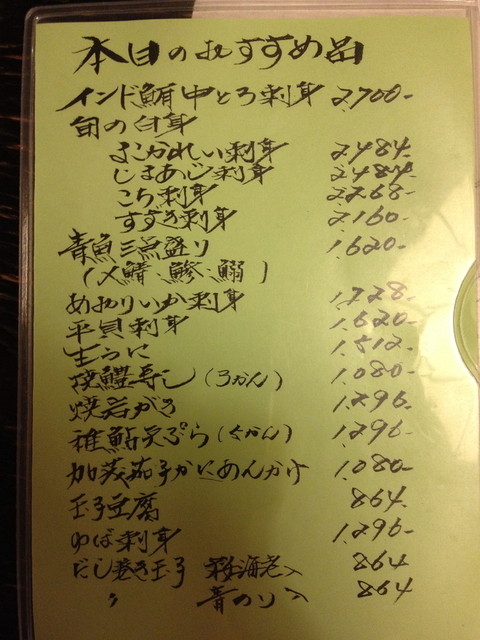 本日のおすすめ品
インド鮪中とろ刺身 2,700-
旬の白身
まこかれい刺身 2,484-
しまあじ刺身 2,484-
こち刺身 2,268-
すずき刺身 2,160-
青魚三点盛り 1,620-
(〆鯖・鯵・鰯)
あおりいか刺身 1,728-
平貝刺身 1,620-
生うに 1,512-
焼鱧寿し(3かん) 1,080-
焼岩がき 1,296-
稚鮎天ぷら(5かん) 1,296-
加茂茄子かにあんかけ 1,080-
玉子豆腐 864
ゆば刺身 1,296-
だし巻き玉子 桜海老入 864
〃 青のり入 864